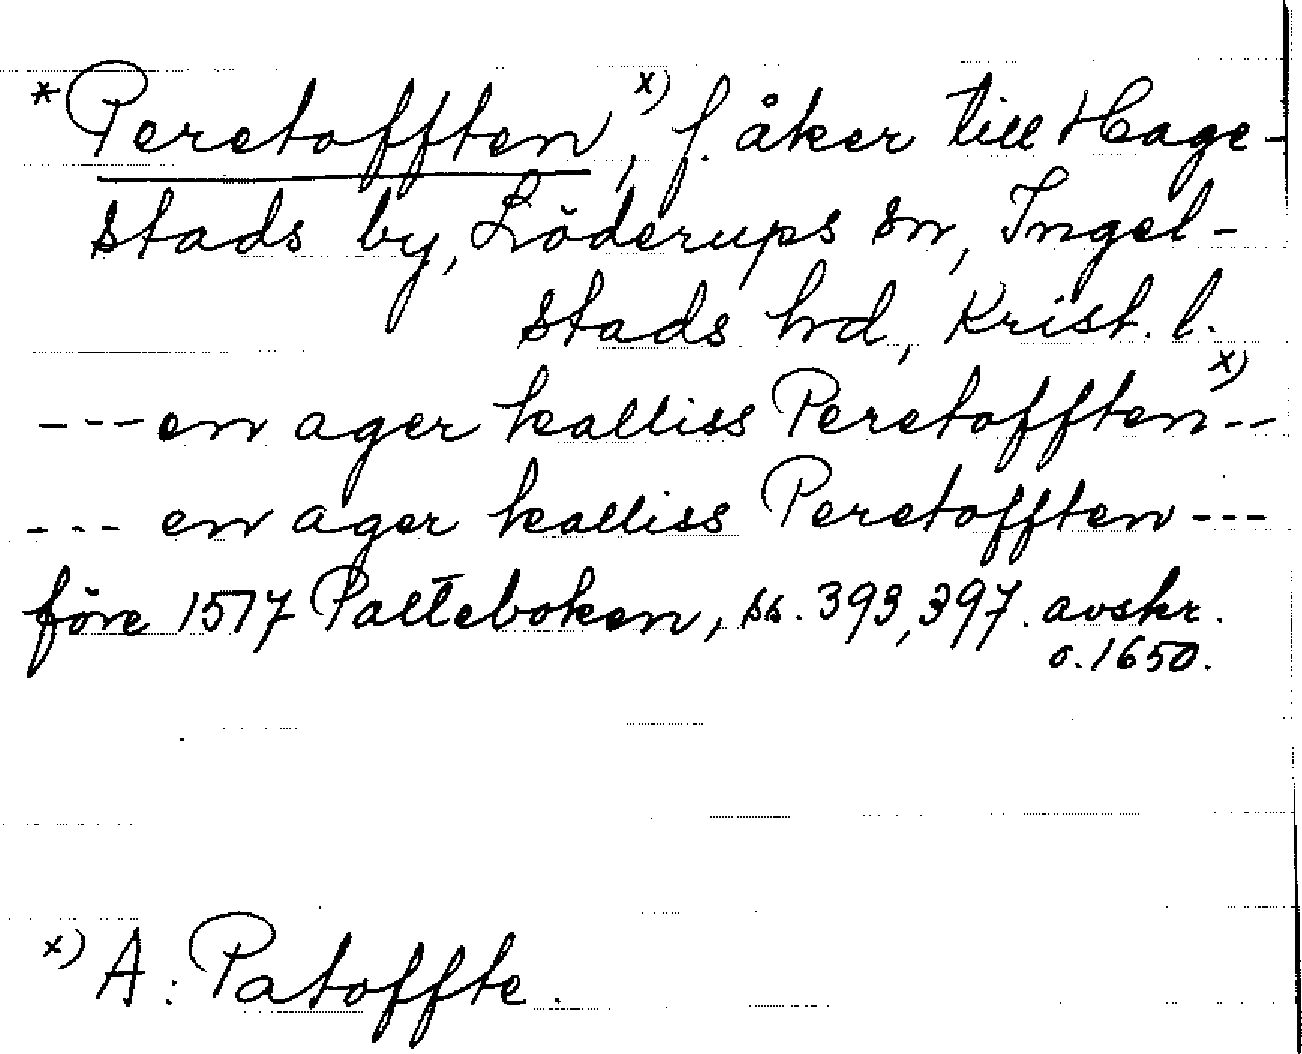 *Peretofften, x) f. åker till Hage-
stads by, Löderups sn, Ingel-
stads hrd, Krist. l.
---en ager kalliss Peretofften x)--
--- en ager kalliss Peretofften ---
före 1517 Palteboken, ss. 393, 397. avskr.
o. 1650.
x) A: Patoffte.